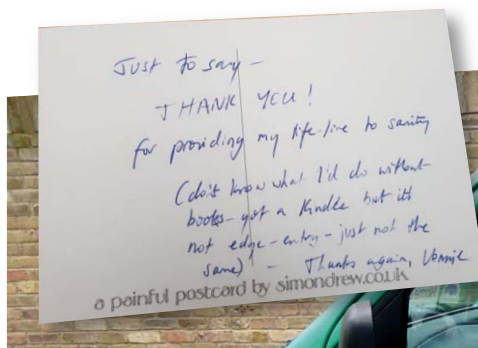 Just to say –
THANK YOU!
for providing my life-line to sanity
(don't know what I'd do without
books – got a Kindle but it's
not edge-entry – just not the
same) – Thanks again,
a painful postcard by simondrew.co.uk